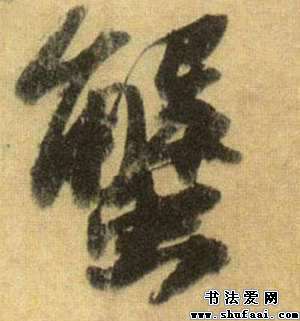 蟹
书法爱网
www.shufaai.com